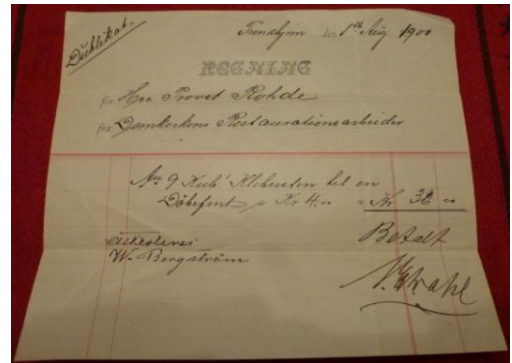 Dublikat.
Trondhjem den 1ste Aug 1900
REGNING
for Hrr. Provst Rohde
fra Domkirkens Restaurationsarbeider
9 Kub' Klebersten til en
Døbefont Kr. 4.00 = Kr 36 00
Betalt
Attesteres
W. Bergström